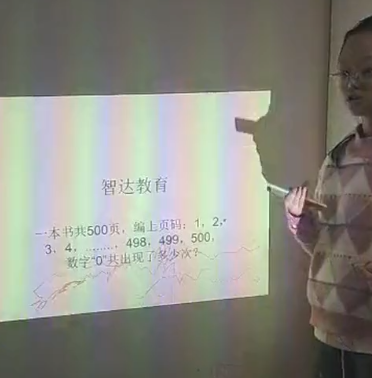 智达教育
一本书共500页，编上页码：1，2，
3，4，………，498，499，500，
数字“0”共出现了多少次？